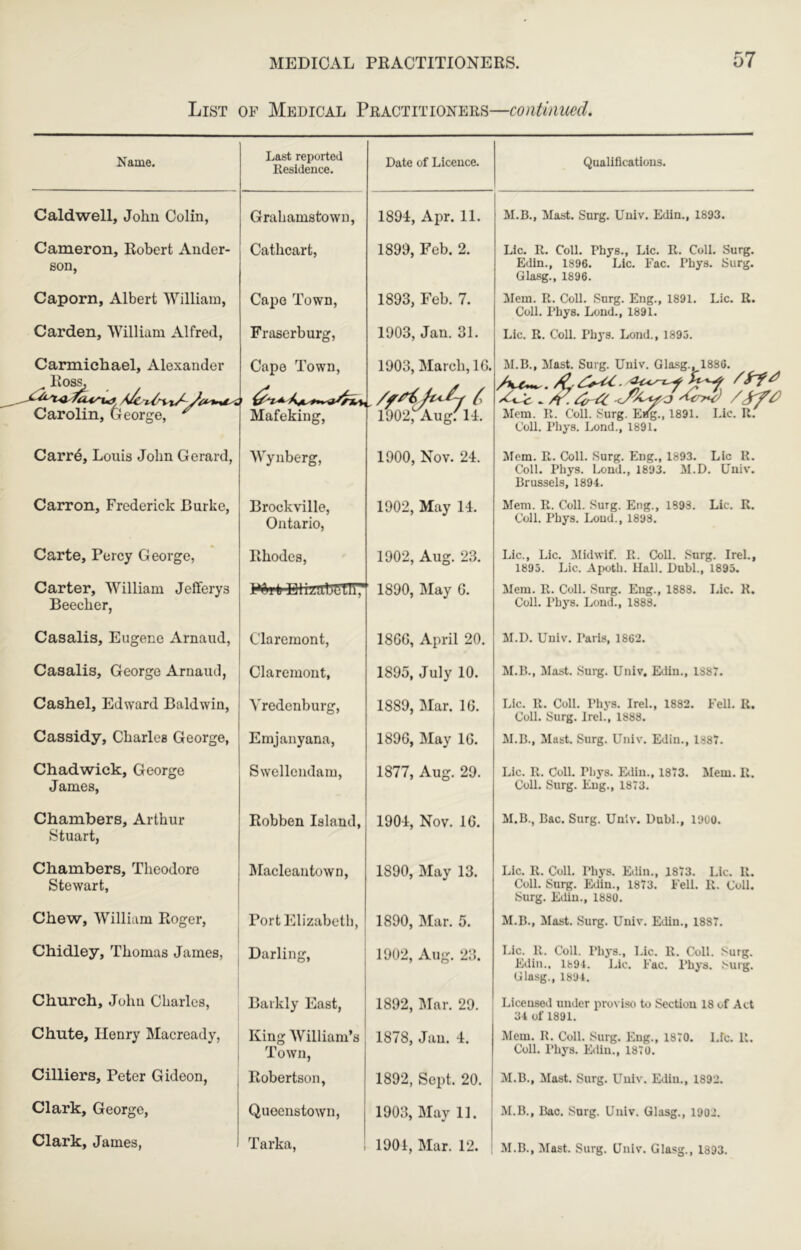 MEDICAL PRACTITIONERS. 57
LIST OF MEDICAL PRACTITIONERS—continued.
Name. Last reported Residence. Date of Licence. Qualifications.
Caldwell, John Colin, Grahamstown, 1894, Apr. 11. M.B., Mast. Surg. Univ. Edin., 1893.
Cameron, Robert Ander- Cathcart, 1899, Feb. 2. Lic. R. Coll. Phys., Lic. R. Coll. Surg.
son, Edin., 1896. Lic. Fac. Phys. Surg.
Glasg., 1896.
Caporn, Albert William, Cape Town, 1893, Feb. 7. Mem. R. Coll. Surg. Eng., 1891. Lic. R.
Coll. Phys. Lond., 1891.
Carden, William Alfred, Fraserburg, 1903, Jan. 31. Lic. R. Coll. Phys. Lond., 1895.
Carmichael, Alexander Cape Town, 1903, March, 16. M.B., Mast. Surg. Univ. Glasg., 1886.
Ross,
Mem. R. Coll. Surg. Eng. 1890
Lic. R. Coll. Phys. Lond 1890
Carolin, George, Mafeking, 1902, Aug. 14. Mem. R. Coll. Surg. Eng., 1891. Lic. R.
Coll. Phys. Lond., 1891.
Carré, Louis John Gerard, Wynberg, 1900, Nov. 24. Mem. R. Coll. Surg. Eng., 1893. Lic R.
Coll. Phys. Lond., 1893. M.D. Univ.
Brussels, 1894.
Carron, Frederick Burke, Brockville, 1902, May 14. Mem. R. Coll. Surg. Eng., 1898. Lic. R.
Ontario, Coll. Phys. Lond., 1898.
Carte, Percy George, Rhodes, 1902, Aug. 23. Lic., Lic. Midwif. R. Coll. Surg. Irel.,
1895. Lic. Apoth. Hall. Dubl., 1895.
Carter, William Jefferys Port Elizabeth, 1890, May 6. Mem. R. Coll. Surg. Eng., 1888. Lic. R.
Beecher, Coll. Phys. Lond., 1888.
Casalis, Eugene Arnaud, Claremont, 1866, April 20. M.D. Univ. Paris, 1862.
Casalis, George Arnaud, Claremont, 1895, July 10. M.B., Mast. Surg. Univ. Edin., 1887.
Cashel, Edward Baldwin, Vredenburg, 1889, Mar. 16. Lic. R. Coll. Phys. Irel., 1882. Fell. R.
Coll. Surg. Irel., 1888.
Cassidy, Charles George, Emjanyana, 1896, May 16. M.B., Mast. Surg. Univ. Edin., 1887.
Chadwick, George Swellendam, 1877, Aug. 29. Lic. R. Coll. Phys. Edin., 1873. Mem. R.
James, Coll. Surg. Eng., 1873.
Chambers, Arthur Robben Island, 1904, Nov. 16. M.B., Bac. Surg. Univ. Dubl., 1900.
Stuart,
Chambers, Theodore Macleantown, 1890, May 13. Lic. R. Coll. Phys. Edin., 1873. Lic. R.
Stewart, Coll. Surg. Edin., 1873. Fell. R. Coll.
Surg. Edin., 1880.
Chew, William Roger, Port Elizabeth, 1890, Mar. 5. M.B., Mast. Surg. Univ. Edin., 1887.
Chidley, Thomas James, Darling, 1902, Aug. 23. Lic. R. Coll. Phys., Lic. R. Coll. Surg.
Edin., 1894. Lic. Fac. Phys. Surg.
Glasg., 1894.
Church, John Charles, Barkly East, 1892, Mar. 29. Licensed under proviso to Section 18 of Act
34 of 1891.
Chute, Henry Macready, King William's 1878, Jan. 4. Mem. R. Coll. Surg. Eng., 1870. Lic. R.
Town, Coll. Phys. Edin., 1870.
Cilliers, Peter Gideon, Robertson, 1892, Sept. 20. M.B., Mast. Surg. Univ. Edin., 1892.
Clark, George, Queenstown, 1903, May 11. M.B., Bac. Surg. Univ. Glasg., 1902.
Clark, James, Tarka, 1904, Mar. 12. M.B., Mast. Surg. Univ. Glasg., 1893.